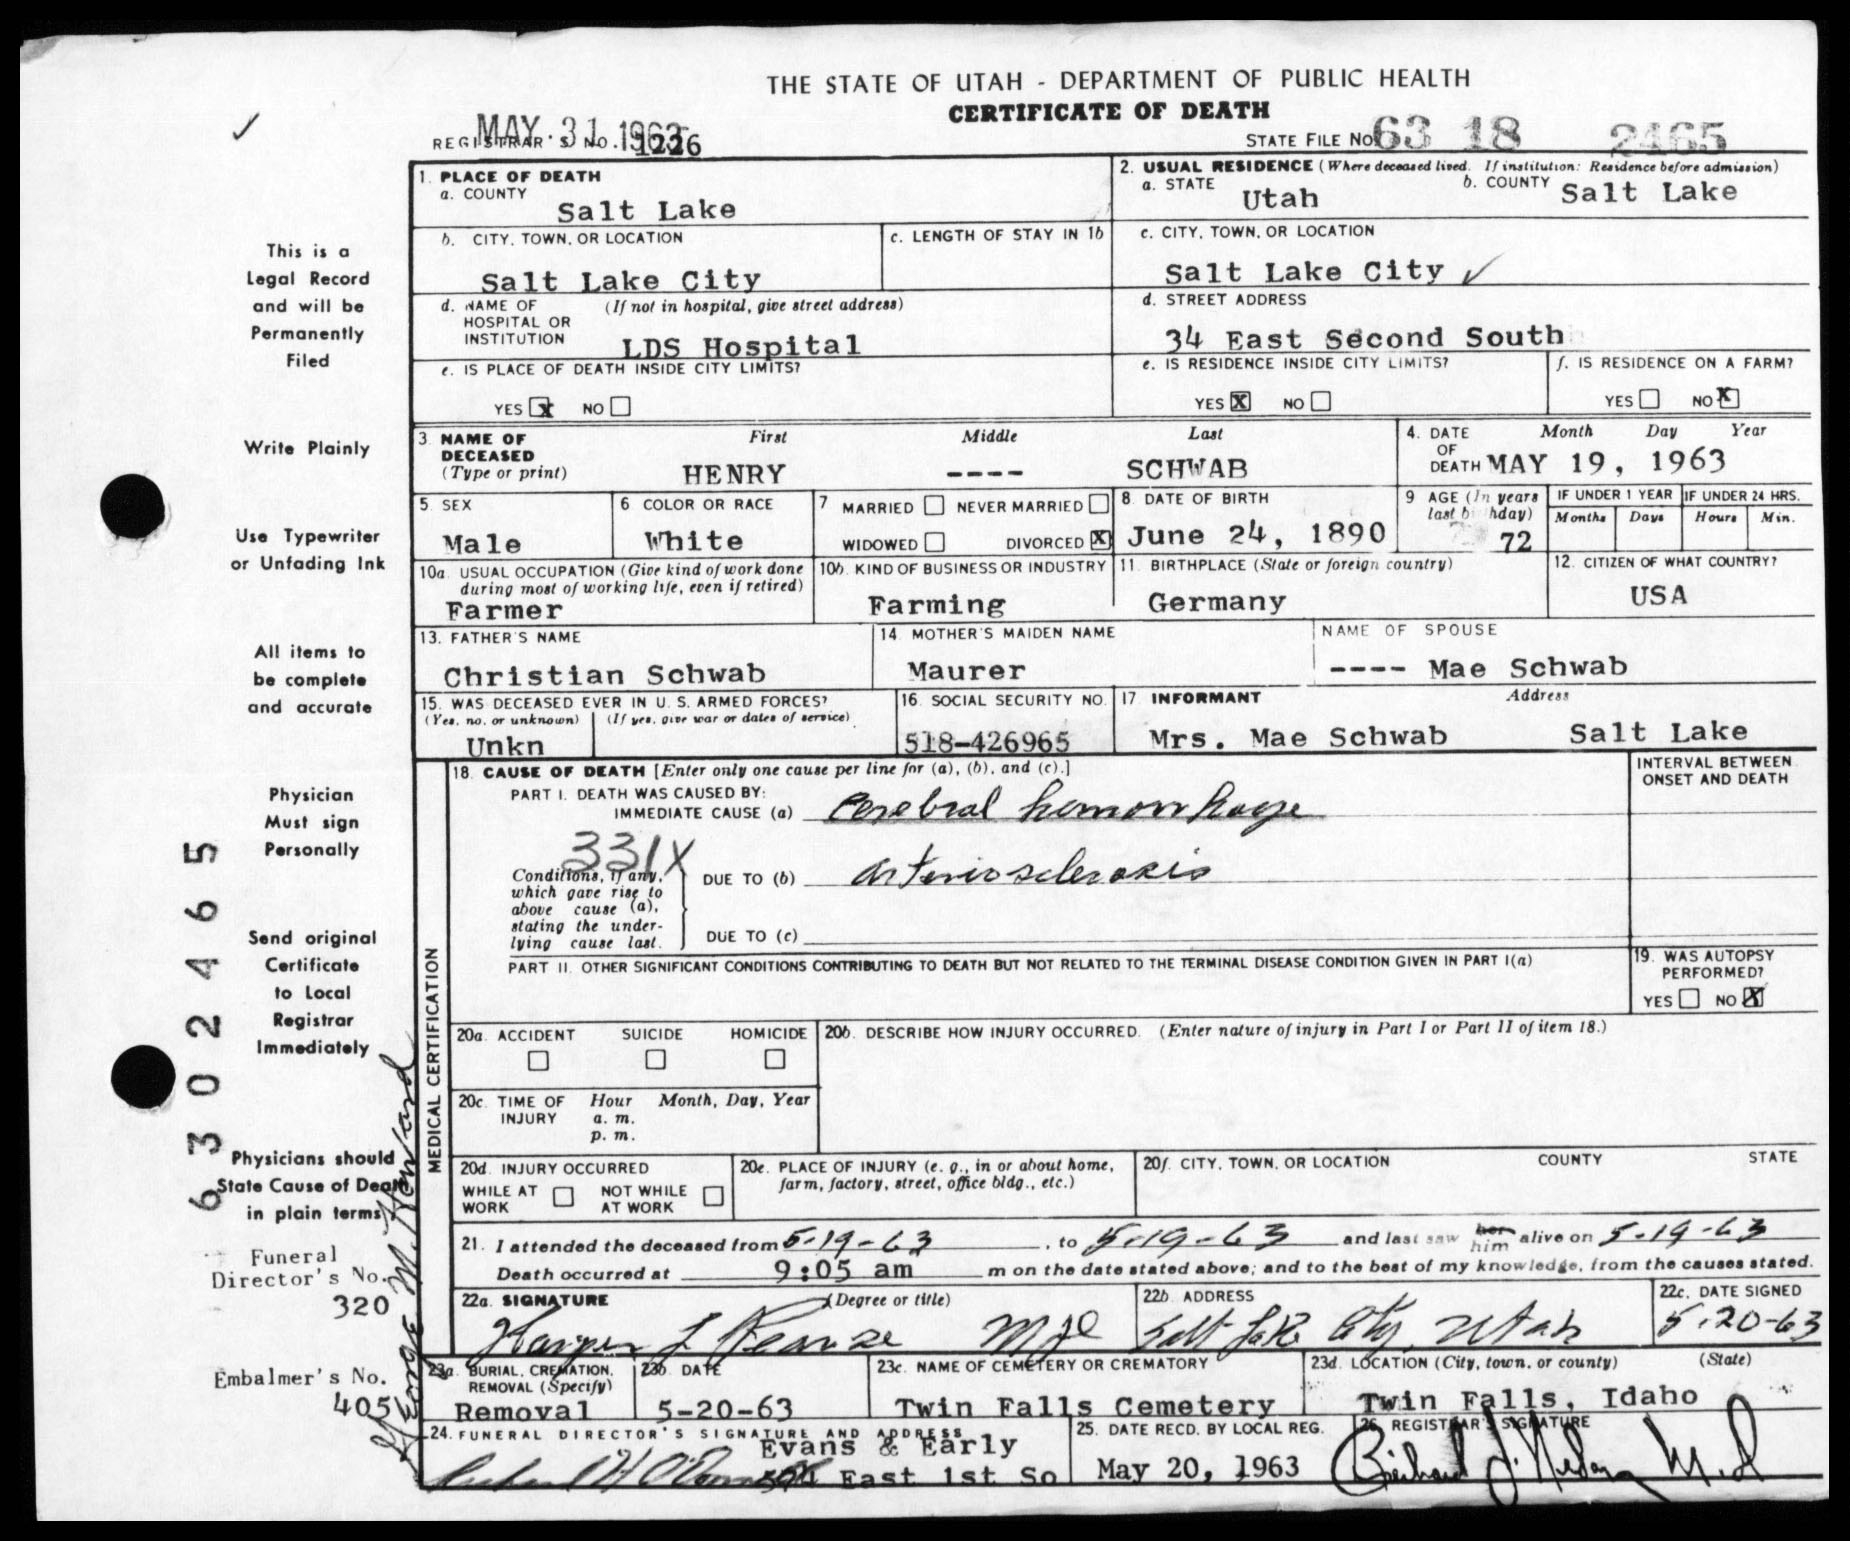 THE STATE OF UTAH - DEPARTMENT OF PUBLIC HEALTH
CERTIFICATE OF DEATH
REGISTRAR'S NO. 1226
MAY 31 1963
STATE FILE NO. 63 18 2465
1. PLACE OF DEATH
a. COUNTY
Salt Lake
2. USUAL RESIDENCE (Where deceased lived. If institution: Residence before admission)
a. STATE Utah b. COUNTY Salt Lake
b. CITY, TOWN, OR LOCATION
Salt Lake City
c. LENGTH OF STAY IN 1b
c. CITY, TOWN, OR LOCATION
Salt Lake City ✓
d. NAME OF HOSPITAL OR INSTITUTION (If not in hospital, give street address)
LDS Hospital
d. STREET ADDRESS
34 East Second South
e. IS PLACE OF DEATH INSIDE CITY LIMITS?
YES X NO
e. IS RESIDENCE INSIDE CITY LIMITS?
YES X NO
f. IS RESIDENCE ON A FARM?
YES NO X
3. NAME OF DECEASED (Type or print)
First Middle Last
HENRY ---- SCHWAB
4. DATE OF DEATH Month Day Year
MAY 19, 1963
5. SEX
Male
6 COLOR OR RACE
White
7 MARRIED NEVER MARRIED
WIDOWED DIVORCED X
8 DATE OF BIRTH
June 24, 1890
9 AGE (In years last birthday)
72
IF UNDER 1 YEAR
Months Days
IF UNDER 24 HRS.
Hours Min.
10a. USUAL OCCUPATION (Give kind of work done during most of working life, even if retired)
Farmer
10b. KIND OF BUSINESS OR INDUSTRY
Farming
11. BIRTHPLACE (State or foreign country)
Germany
12. CITIZEN OF WHAT COUNTRY?
USA
13. FATHER'S NAME
Christian Schwab
14. MOTHER'S MAIDEN NAME
Maurer
NAME OF SPOUSE
---- Mae Schwab
15. WAS DECEASED EVER IN U. S. ARMED FORCES?
(Yes, no, or unknown) (If yes, give war or dates of service)
Unkn
16. SOCIAL SECURITY NO.
518-426965
17 INFORMANT Address
Mrs. Mae Schwab Salt Lake
MEDICAL CERTIFICATION
18. CAUSE OF DEATH [Enter only one cause per line for (a), (b), and (c).]
INTERVAL BETWEEN ONSET AND DEATH
PART I. DEATH WAS CAUSED BY:
IMMEDIATE CAUSE (a) Cerebral hemorrhage
331X
Conditions, if any, which gave rise to above cause (a), stating the underlying cause last.
DUE TO (b) arteriosclerosis
DUE TO (c)
PART II. OTHER SIGNIFICANT CONDITIONS CONTRIBUTING TO DEATH BUT NOT RELATED TO THE TERMINAL DISEASE CONDITION GIVEN IN PART I(a)
19. WAS AUTOPSY PERFORMED?
YES NO X
20a. ACCIDENT SUICIDE HOMICIDE
20b. DESCRIBE HOW INJURY OCCURRED. (Enter nature of injury in Part I or Part II of item 18.)
20c. TIME OF INJURY Hour a. m. p. m. Month, Day, Year
20d. INJURY OCCURRED
WHILE AT WORK NOT WHILE AT WORK
20e. PLACE OF INJURY (e. g., in or about home, farm, factory, street, office bldg., etc.)
20f. CITY, TOWN, OR LOCATION COUNTY STATE
21. I attended the deceased from 5-19-63, to 5-19-63 and last saw her him alive on 5-19-63
Death occurred at 9:05 am m on the date stated above; and to the best of my knowledge, from the causes stated.
22a. SIGNATURE (Degree or title)
Harper L Pearse MD
22b. ADDRESS
Salt Lake City, Utah
22c. DATE SIGNED
5-20-63
23a. BURIAL, CREMATION, REMOVAL (Specify)
Removal
23b. DATE
5-20-63
23c. NAME OF CEMETERY OR CREMATORY
Twin Falls Cemetery
23d. LOCATION (City, town, or county) (State)
Twin Falls, Idaho
24. FUNERAL DIRECTOR'S SIGNATURE AND ADDRESS
Evans & Early
574 East 1st So
25. DATE RECD. BY LOCAL REG.
May 20, 1963
26. REGISTRAR'S SIGNATURE
M.D
This is a
Legal Record
and will be
Permanently
Filed
Write Plainly
Use Typewriter
or Unfading Ink
All items to
be complete
and accurate
Physician
Must sign
Personally
Send original
Certificate
to Local
Registrar
Immediately
Physicians should
State Cause of Death
in plain terms
Funeral
Director's No.
320
Embalmer's No.
405
6302465
George M. Howard